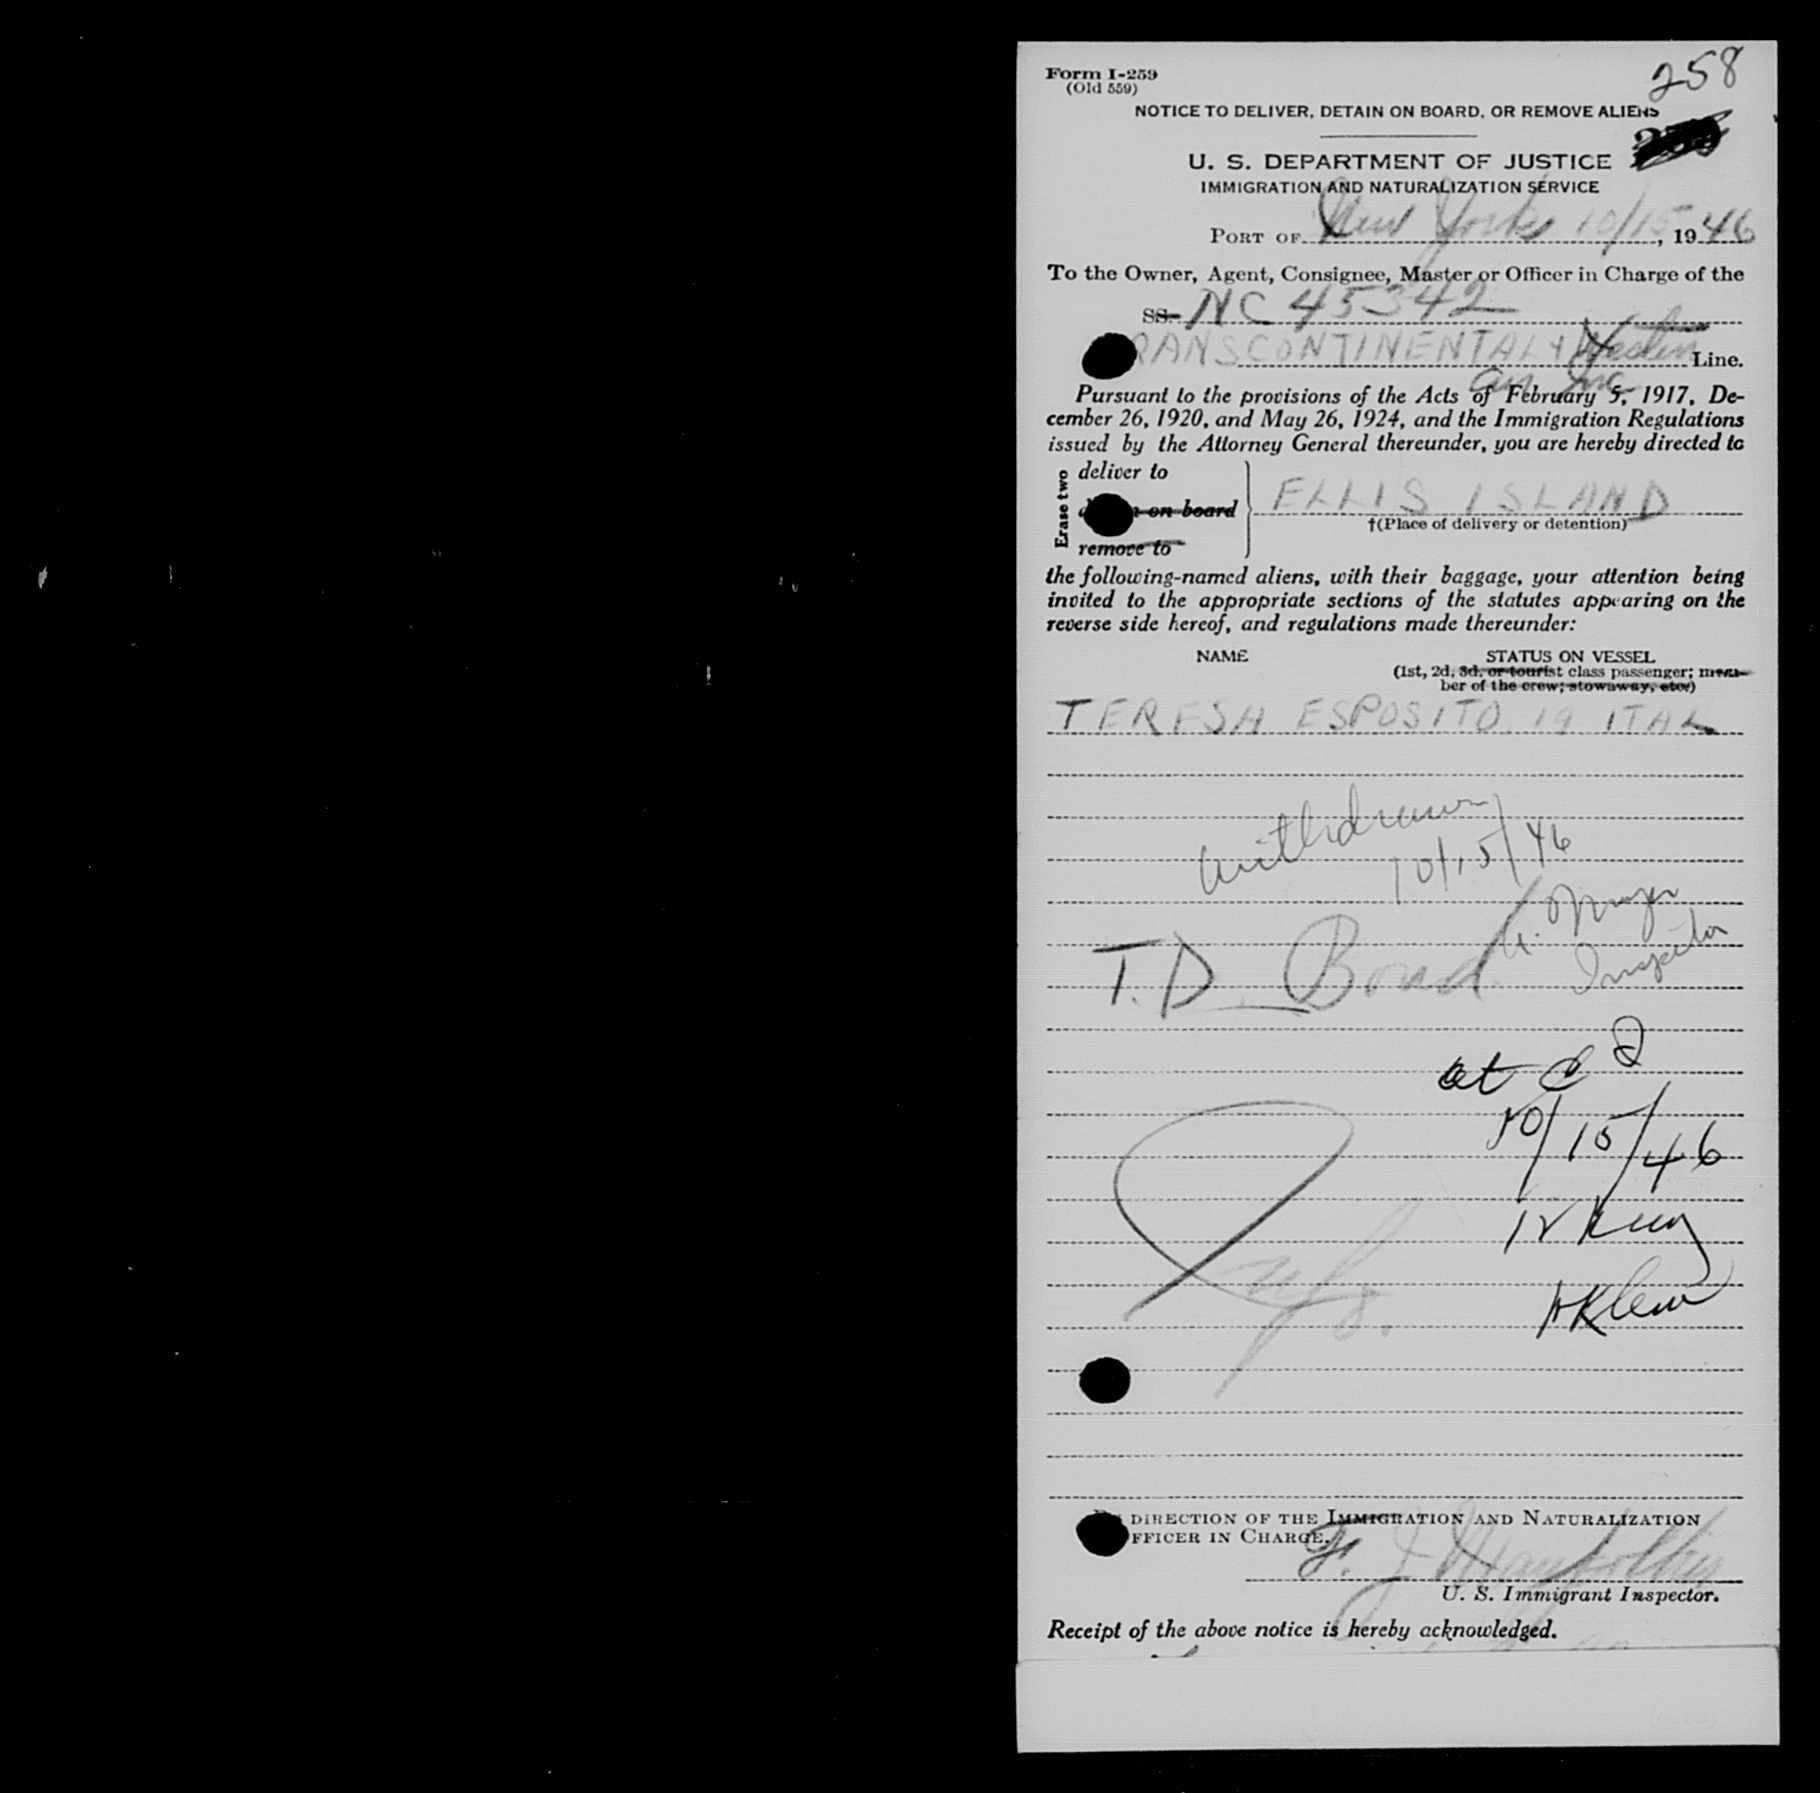 Form I-259
(Old 559)
258
NOTICE TO DELIVER, DETAIN ON BOARD, OR REMOVE ALIENS
U. S. DEPARTMENT OF JUSTICE
IMMIGRATION AND NATURALIZATION SERVICE
PORT OF New York 10/15, 1946
To the Owner, Agent, Consignee, Master or Officer in Charge of the
SS. NC 45342
RANSCONTINENTAL & Western Line.
Air Inc
Pursuant to the provisions of the Acts of February 5, 1917, De-
cember 26, 1920, and May 26, 1924, and the Immigration Regulations
issued by the Attorney General thereunder, you are hereby directed to
Erase two
deliver to
on board
remove to
ELLIS ISLAND
†(Place of delivery or detention)
the following-named aliens, with their baggage, your attention being
invited to the appropriate sections of the statutes appearing on the
reverse side hereof, and regulations made thereunder:
NAME STATUS ON VESSEL
(1st, 2d, 3d, or tourist class passenger; mem-
ber of the crew; stowaway, etc.)
TERESA ESPOSITO 19 ITAL
withdrawn
10/15/46
Inspector
T.D. Bond
at
10/15/46
H Klein
DIRECTION OF THE IMMIGRATION AND NATURALIZATION
FFICER IN CHARGE.
F. J.
U. S. Immigrant Inspector.
Receipt of the above notice is hereby acknowledged.